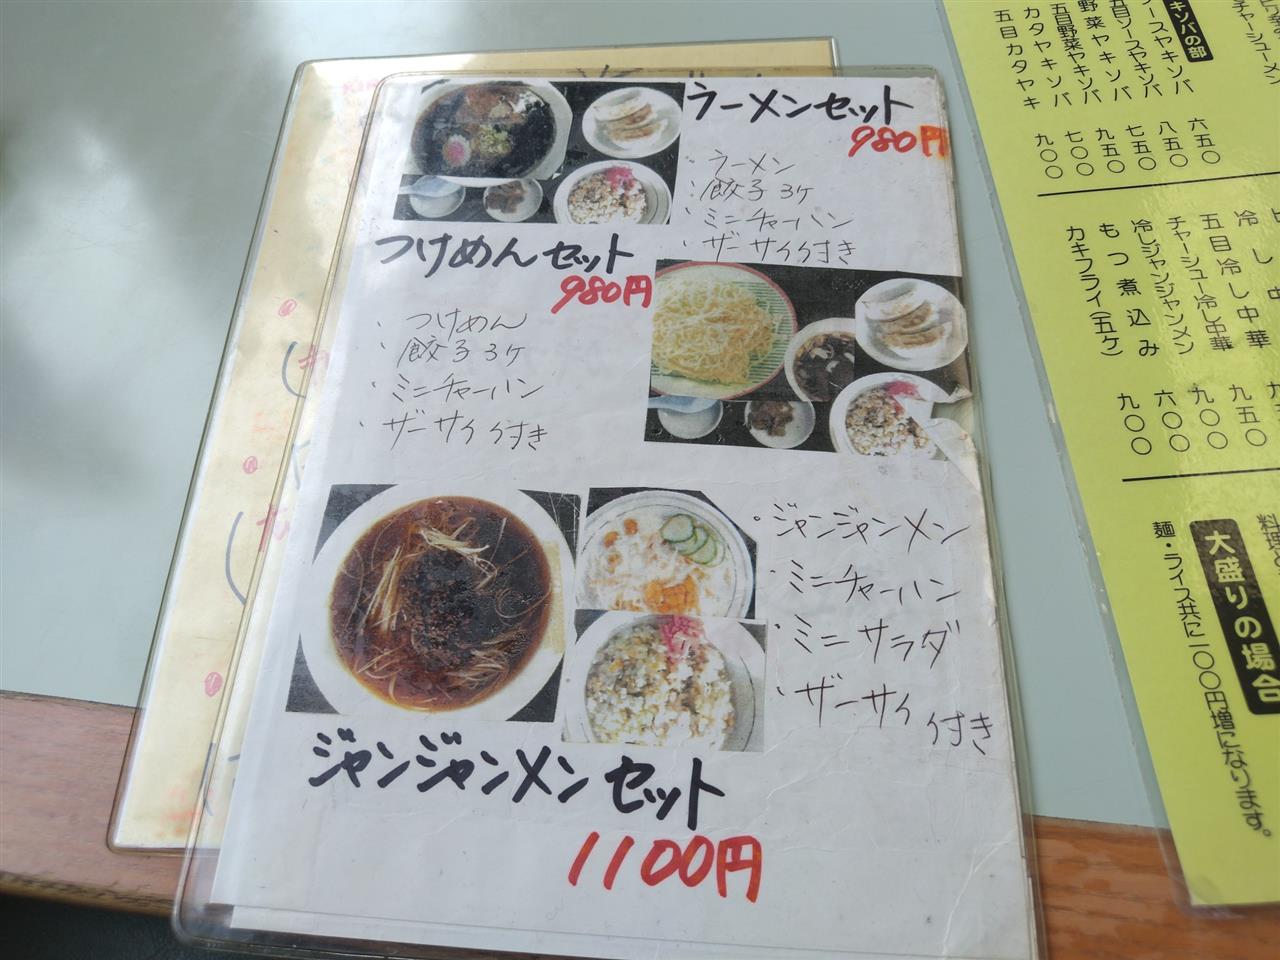 ラーメンセット
980円
・ラーメン
・餃子3ヶ
・ミニチャーハン
・ザーサイ付き
つけめんセット
980円
・つけめん
・餃子3ヶ
・ミニチャーハン
・ザーサイ付き
・ジャンジャンメン
・ミニチャーハン
・ミニサラダ
・ザーサイ付き
ジャンジャンメンセット
1100円
チャーシューメン
キソバの部
ソースヤキソバ 六五〇
五目ソースヤキソバ 八五〇
野菜ヤキソバ 七五〇
五目野菜ヤキソバ 九五〇
カタヤキソバ 七〇〇
五目カタヤキ 九〇〇
冷し中
五目冷し中華
チャーシュー冷し中華 九五〇
冷しジャンジャンメン 九〇〇
もつ煮込み 六〇〇
カキフライ(五ヶ) 九〇〇
大盛りの場合
麺・ライス共に一〇〇円増になります。